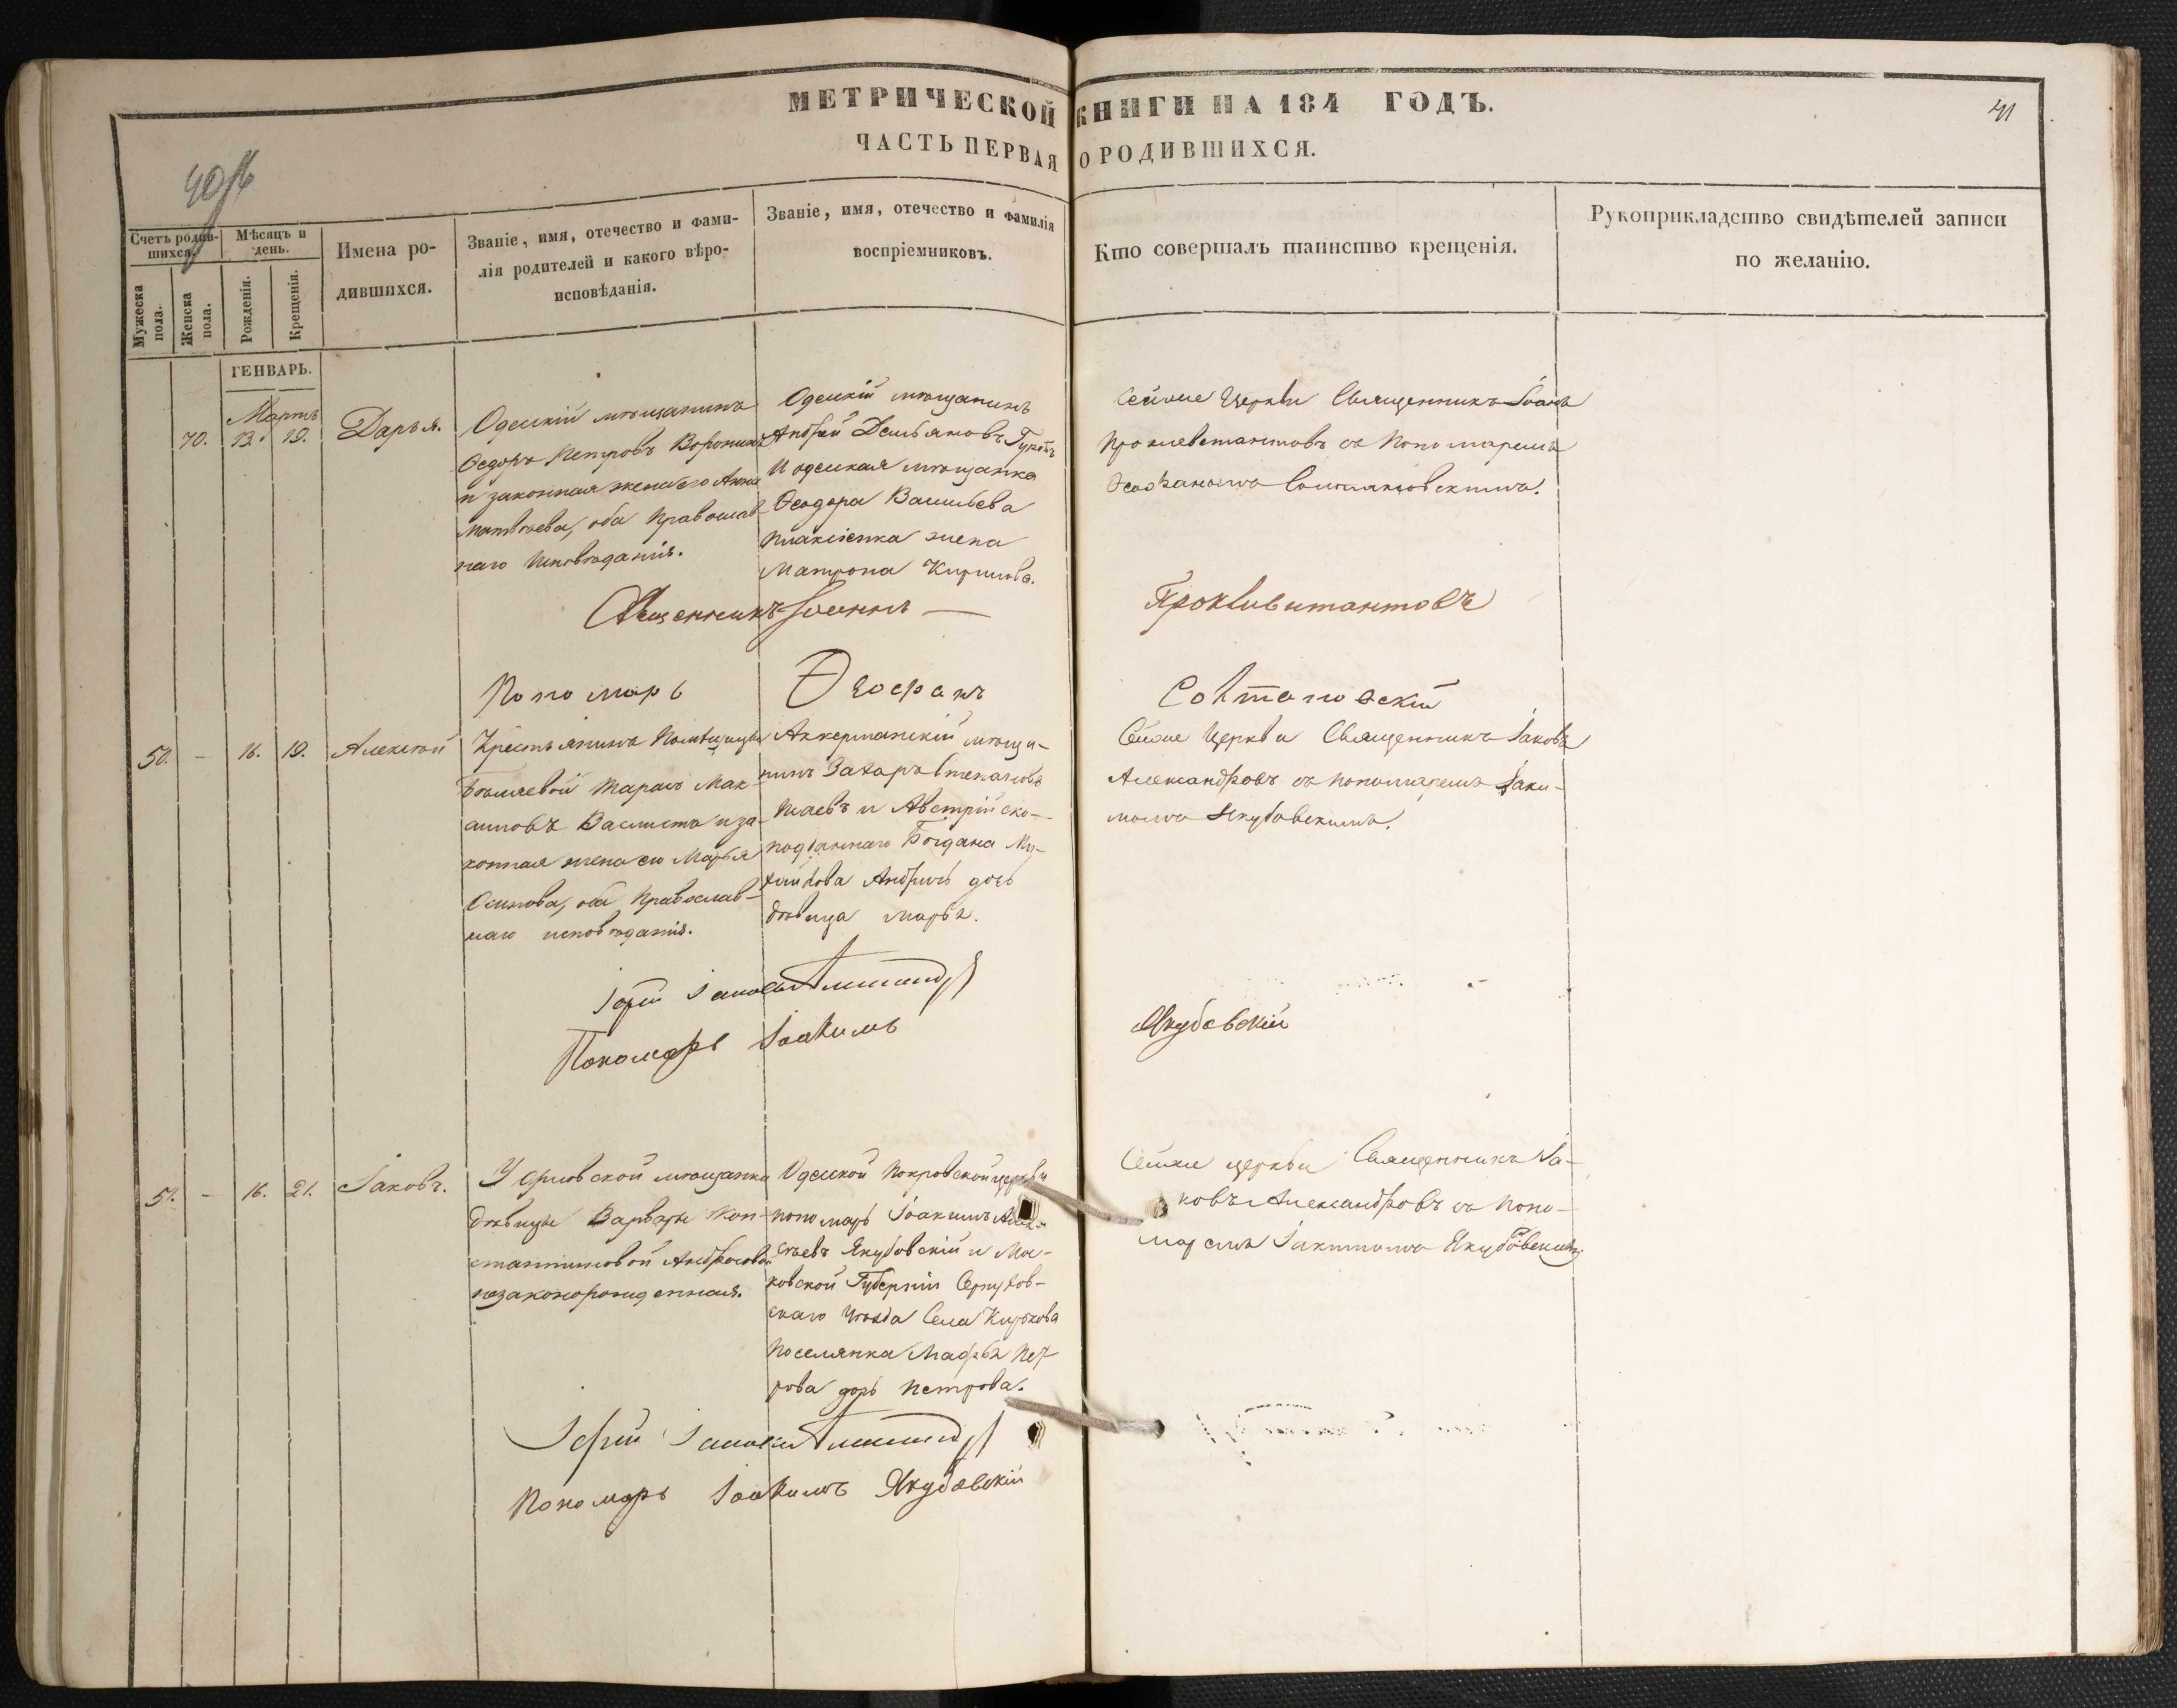 МЕТРИЧЕСКОЙ КНИГИ НА 184 ГОДЪ.
41
ЧАСТЬ ПЕРВАЯ О РОДИВШИХСЯ.
Счетъ родив-
шихся.
Мужеска
пола.
Женска
пола.
Мѣсяцъ и
день.
Рожденія.
Крещенія.
Имена ро-
дившихся.
Званіе, имя, отечество и фами-
лія родителей и какого вѣро-
исповѣданія.
Званіе, имя, отечество и фамилія
воспріемниковъ.
Кто совершалъ таинство крещенія.
Рукоприкладство свидѣтелей записи
по желанію.
ГЕНВАРЬ.
Мартъ
70. 13. 19. Дарья.
Одесскій мѣщанинъ
Ѳедоръ Петровъ Воронин
и законная жена его Анна
Матвѣева, оба Православ-
наго Исповѣданія.
Одесскій мѣщанинъ
Андрей Демьяновъ
И одесская мѣщанка
Ѳеодора Васильева
жена
Матрона Кирилова.
Сейже Церкви Священникъ Іоаннъ
съ Пономаремъ
Священникъ Іоаннъ
Пономарь Ѳеофанъ
50. - 16. 19. Алексѣй
Крестьянинъ Помѣщицы
Тарасъ Мак-
симовъ и за-
конная жена его Марья
Осипова, оба Православ-
наго исповѣданія.
Аккерманскій мѣща-
нинъ Захаръ
и Австрійско-
подданнаго Богдана Ми-
хайлова дочь
дѣвица Марья.
Сейже Церкви Священникъ Іаковъ
Александровъ съ пономаремъ Іаки-
момъ Якубовскимъ.
Іерей Іаковъ
Пономарь Іоакимъ Якубовскій
51. - 16. 21. Іаковъ.
У мѣщанки
дѣвицы Варвары Кон-
стантиновой Андросовой
незаконорожденная.
Одесской Покровской церкви
пономарь Іоакимъ Алек-
сѣевъ Якубовскій и Мос-
ковской Губерніи Серпухов-
скаго Уѣзда Села
Поселянка Марья Пет-
рова дочь Петрова.
Сейже церкви Священникъ Іа-
ковъ Александровъ съ Поно-
маремъ Іакимомъ Якубовскимъ
Іерей Іаковъ
Пономарь Іоакимъ Якубовскій